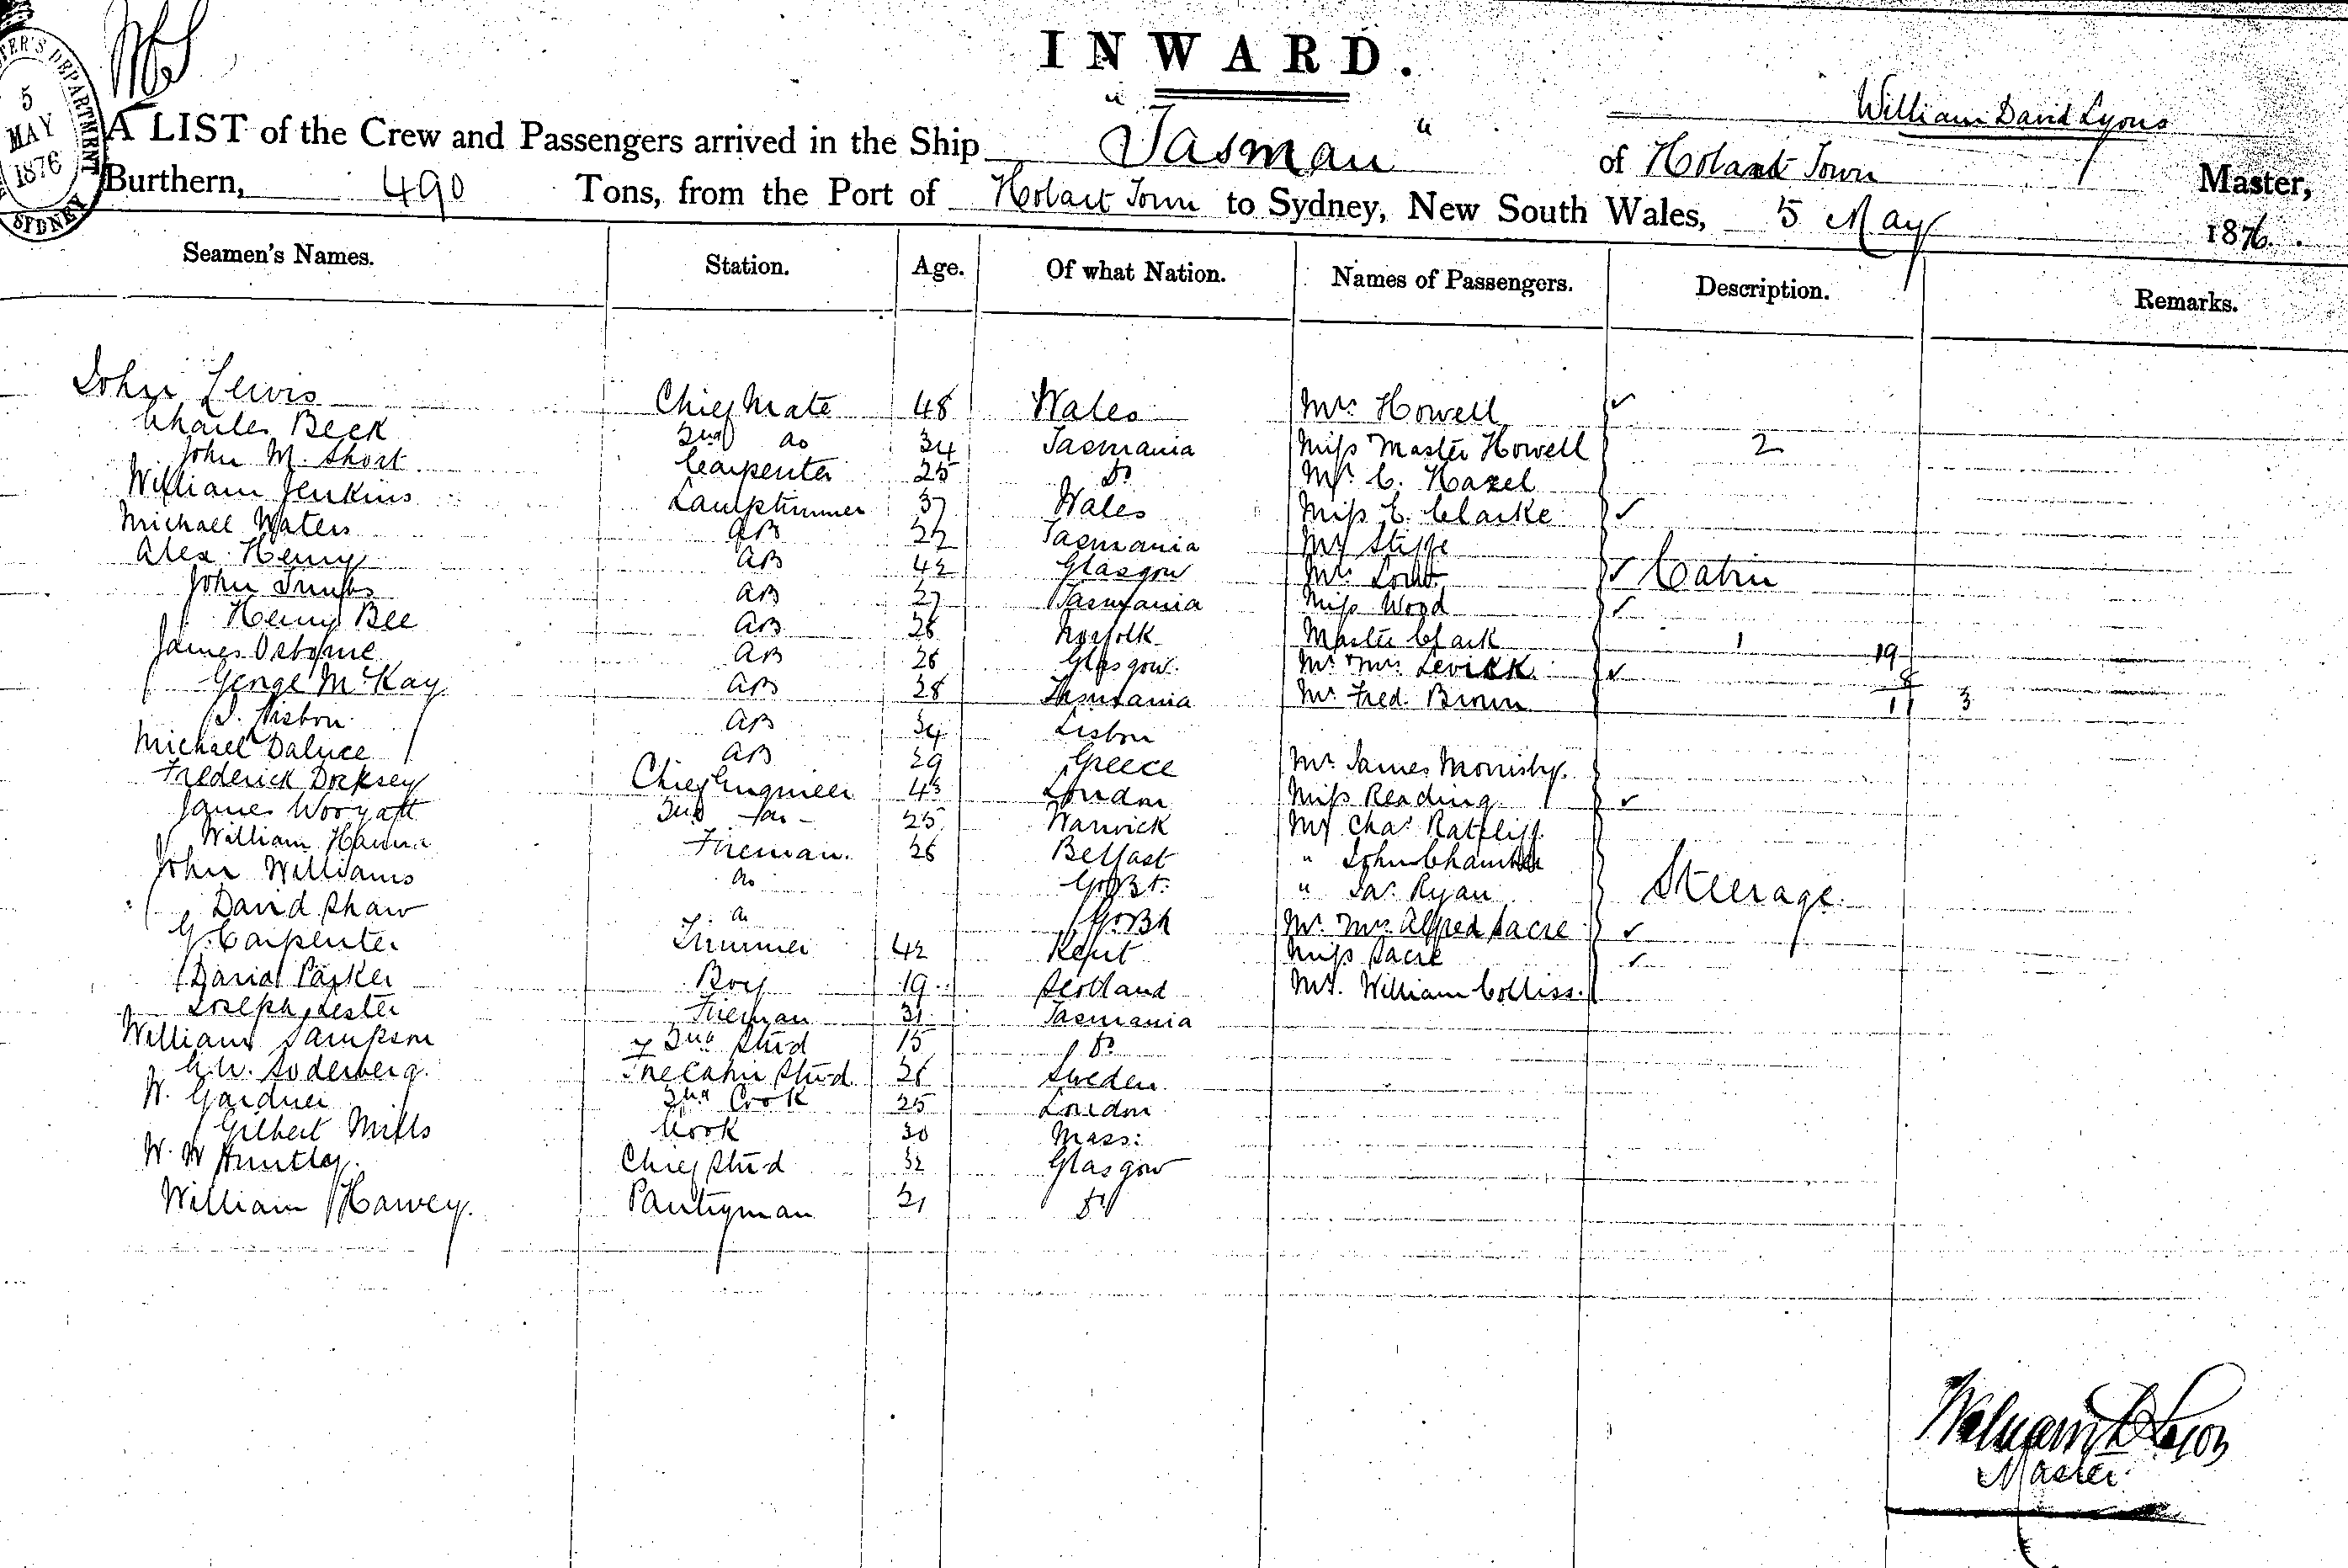 INWARD.
5 MAY 1876
SYDNEY
William David Lyons
A LIST of the Crew and Passengers arrived in the Ship "Tasman" of Hobart Town Master,
Burthern, 490 Tons, from the Port of Hobart Town to Sydney, New South Wales, 5 May 1876.
Seamen's Names. Station. Age. Of what Nation. Names of Passengers. Description. Remarks.
John Lewis Chief Mate 48 Wales Mrs Howell ✓
Charles Beck 2nd do 34 Tasmania Miss Master Howell 2
John M. Short Carpenter 25 Do Mr. C. Hazel
William Jenkins Lamptrimmer 37 Wales Miss E. Clarke ✓
Michael Waters AB 22 Tasmania Mr
Alex. Henry AB 42 Glasgow Mrs ✓ Cabin
John AB 27 Tasmania Miss Wood ✓
Henry Bee AB 26 Norfolk Master Clark 1 19
James Osborne AB 26 Glasgow. Mr Mrs Levick ✓ 8
George McKay AB 28 Tasmania Mr Fred. Brown 11 3
Lisbon. AB 34 Lisbon
Michael Daluce AB 29 Greece Mr James Morrisby.
Frederick Dorksey Chief Engineer 43 London Miss Reading ✓
James Wooyatt 2nd do 25 Warwick Mr Chas Ratcliff
William Hanna Fireman. 26 Belfast " John Chamber
John Williams do " Jas Ryan Steerage.
David Shaw do Mr. Mrs. Alfred Sacre ✓
G. Carpenter Trimmer 42 Kent Miss Sacre ✓
David Parker Boy 19 Scotland Mr. William Colliss.
Joseph Lester Fireman 31 Tasmania
William Sampson 2nd Stud 15 Do
Soderberg. Fre Cabin Stud. 26 Sweden
W. Gardner 2nd Cook 25 London
Gilbert Mills Cook 30 Mass:
W. W Huntley. Chief Stud 32 Glasgow
William Harvey. Pantryman 21 Do
William D Lyons
Master